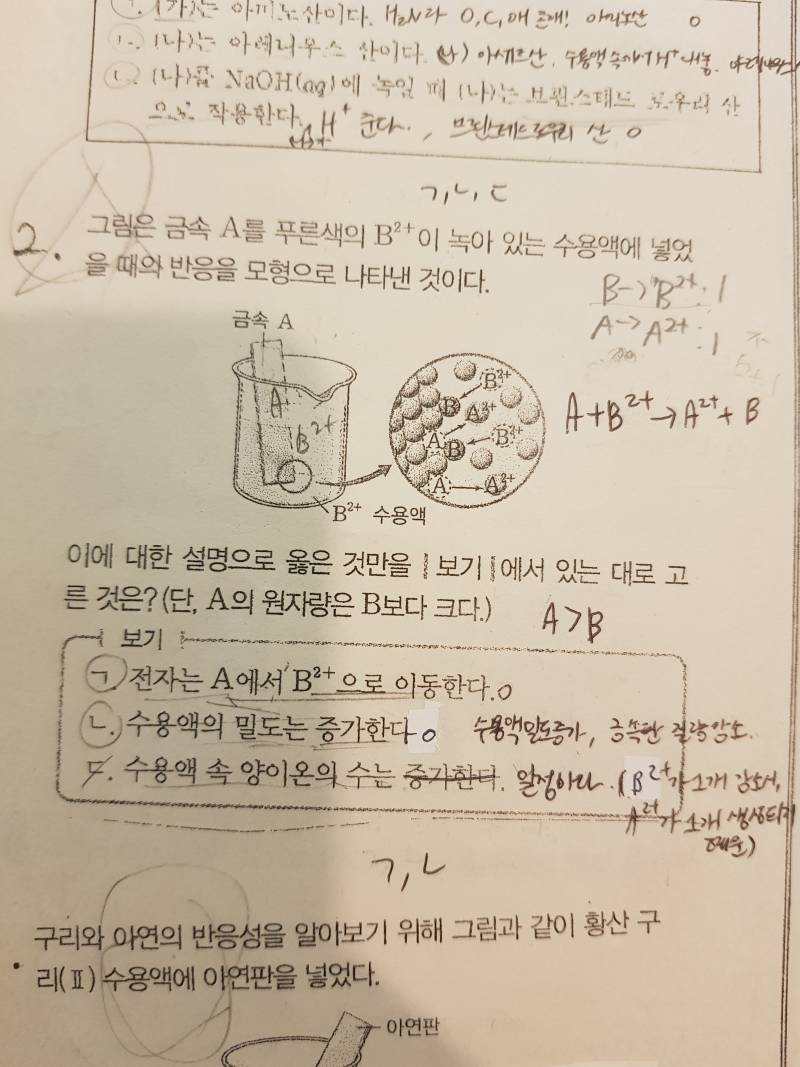 ㄱ. (가)는 아미노산이다. H₂N과 O, C, 에 존재! 아미노산 O
ㄴ. (나)는 아레니우스 산이다. 나) 아세트산, 수용액 속에서 H⁺ 내놓.
ㄷ. (나)를 NaOH(aq)에 녹일 때 (나)는 브뢴스테드 로우리 산
으로 작용한다. H⁺ 준다., 브뢴스테드로우리 산 O
ㄱ, ㄴ, ㄷ
2. 그림은 금속 A를 푸른색의 B²⁺이 녹아 있는 수용액에 넣었
을 때의 반응을 모형으로 나타낸 것이다.
B→B²⁺: 1
A→A²⁺: 1
금속 A
A
B²⁺
B²⁺
B A²⁺
A B B²⁺
A A²⁺
A+B²⁺→A²⁺+B
B²⁺ 수용액
이에 대한 설명으로 옳은 것만을 보기에서 있는 대로 고
른 것은? (단, A의 원자량은 B보다 크다.) A>B
보기
ㄱ. 전자는 A에서 B²⁺으로 이동한다. O
ㄴ. 수용액의 밀도는 증가한다 O 수용액밀도증가, 금속판 질량감소.
ㄷ. 수용액 속 양이온의 수는 증가한다. 일정하다. (B²⁺가 1개 감소,
A²⁺가 1개 생성되기
때문)
ㄱ, ㄴ
구리와 아연의 반응성을 알아보기 위해 그림과 같이 황산 구
리(Ⅱ) 수용액에 아연판을 넣었다.
아연판